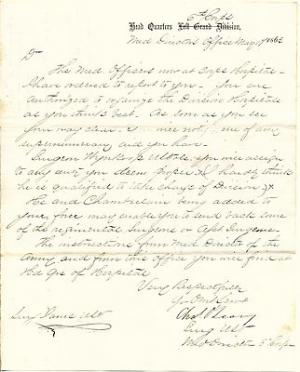 6th Corps
Head Quarters Left Grand Division,
Med Directors Office May 17 1863
Dr
The Med. Officers now at Corps Hospital
I have ordered to report to you. You are
authorized to organize the Division Hospitals
as you think best. As soon as you see
your way clear notify me of any
supernumerary you have.
Surgeon Wynkoop US Vols. you will assign
to any duty you deem proper. I hardly think
he is qualified to take charge of Division H
He and Chamberlain being added to
your force may enable you to send back some
of the regimental Surgeons or Asst Surgeons.
The instructions from Med Director of the
Army and from this office you will find at
Hd Qrs of Hospital
Very Respectfully
Yr Obt Servt
Chas O'Leary
Surg USV
Med Director 6 Corps
Surg USV